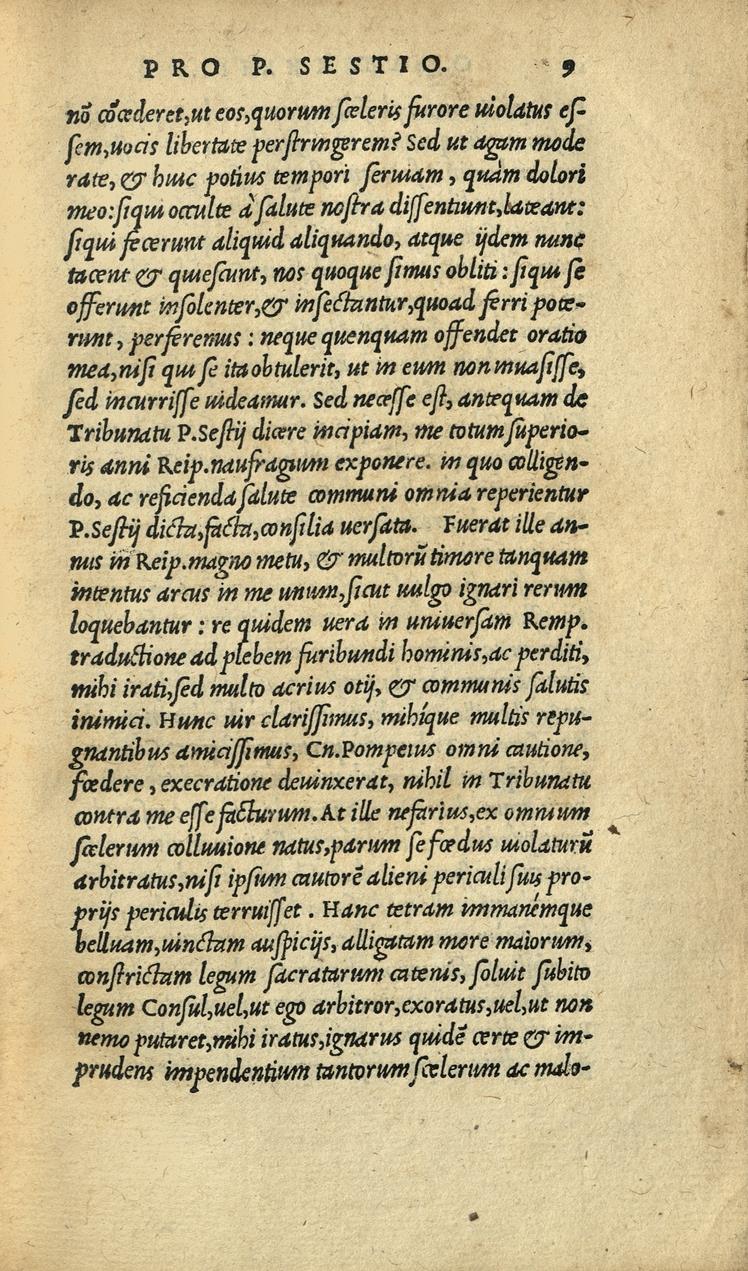 PRO P. SESTIO. 9
nõ cõcederet,ut eos,quorum sceleris furore uiolatus es-
sem,uocis libertate perstringerem? Sed ut agam mode
rate, & huic potius tempori seruiam, quàm dolori
meo:siqui occulte à salute nostra dissentiunt,lateant:
siqui fecerunt aliquid aliquando, atque ijdem nunc
tacent & quiescunt, nos quoque simus obliti: siqui se
offerunt insolenter,& insectantur,quoad ferri pote-
runt, perferemus: neque quenquam offendet oratio
mea,nisi qui se ita obtulerit, ut in eum non inuasisse,
sed incurrisse uideamur. Sed necesse est, antequam de
Tribunatu P.Sestij dicere incipiam, me totum superio-
ris anni Reip.naufragium exponere. in quo colligen-
do, ac reficienda salute communi omnia reperientur
P.Sestij dicta,facta,consilia uersata. Fuerat ille an-
nus in Reip.magno metu, & multorũ timore tanquam
intentus arcus in me unum,sicut uulgo ignari rerum
loquebantur: re quidem uera in uniuersam Remp.
traductione ad plebem furibundi hominis,ac perditi,
mihi irati,sed multo acrius otij, & communis salutis
inimici. Hunc uir clarissimus, mihíque multis repu-
gnantibus amicissimus, Cn.Pompeius omni cautione,
foedere, execratione deuinxerat, nihil in Tribunatu
contra me esse facturum. At ille nefarius,ex omnium
scelerum colluuione natus,parum se foedus uiolaturũ
arbitratus,nisi ipsum cautorẽ alieni periculi suis pro-
prijs periculis terruisset. Hanc tetram immanémque
belluam,uinctam auspicijs, alligatam more maiorum,
constrictam legum sacratarum catenis, soluit subito
legum Consul,uel,ut ego arbitror,exoratus,uel,ut non
nemo putaret,mihi iratus,ignarus quidẽ certe & im-
prudens impendentium tantorum scelerum ac malo-